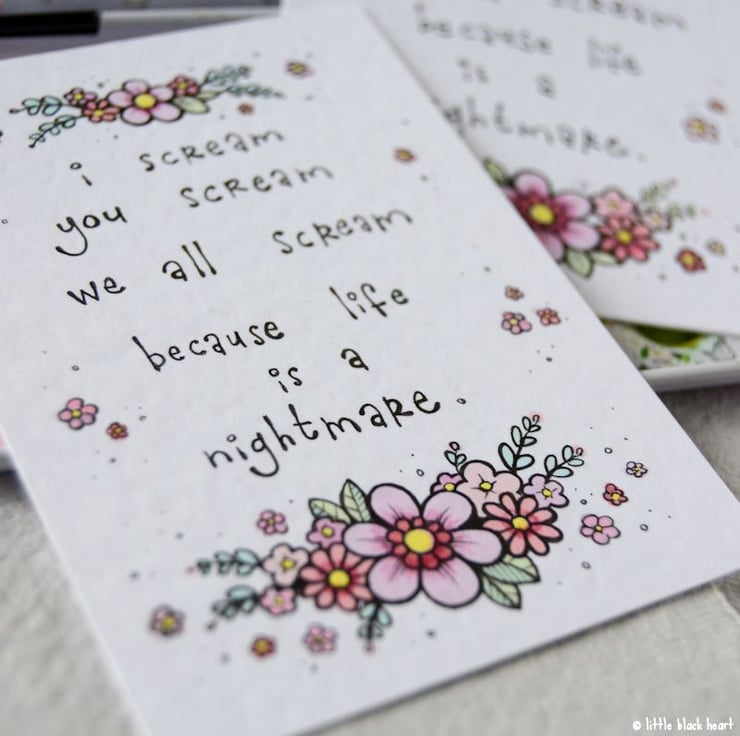 i scream
you scream
we all scream
because life
is a
nightmare.
scream
because life
is a
nightmare.
© little black heart